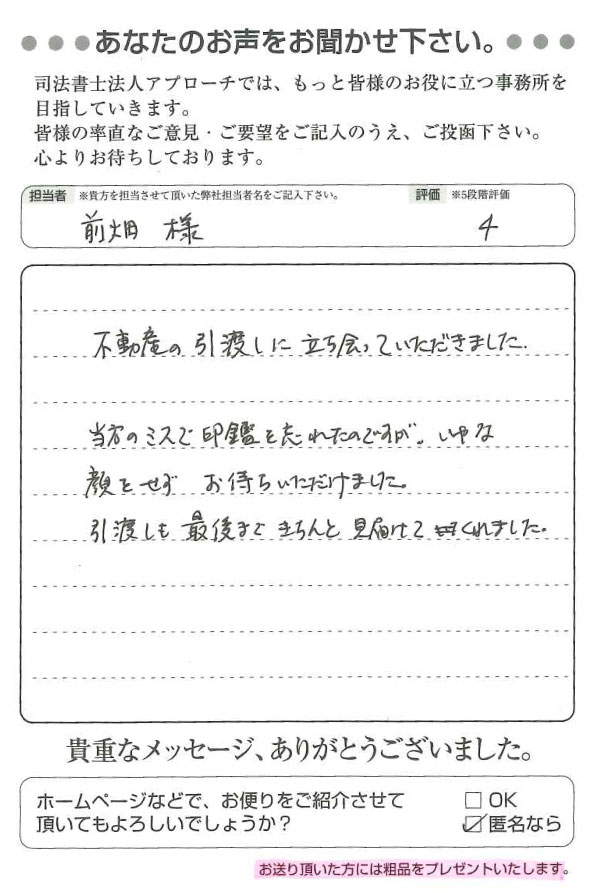 ●●●あなたのお声をお聞かせ下さい。●●●
司法書士法人アプローチでは、もっと皆様のお役に立つ事務所を
目指していきます。
皆様の率直なご意見・ご要望をご記入のうえ、ご投函下さい。
心よりお待ちしております。
担当者 ※貴方を担当させて頂いた弊社担当者名をご記入下さい。 評価 ※5段階評価
前畑 様 4
不動産の引渡しに立ち会っていただきました。
当方のミスで印鑑を忘れたのですが。いやな
顔をせず お待ちいただけました。
引渡しも最後まできちんと見届けてくれました。
貴重なメッセージ、ありがとうございました。
ホームページなどで、お便りをご紹介させて □ OK
頂いてもよろしいでしょうか? ☑ 匿名なら
お送り頂いた方には粗品をプレゼントいたします。